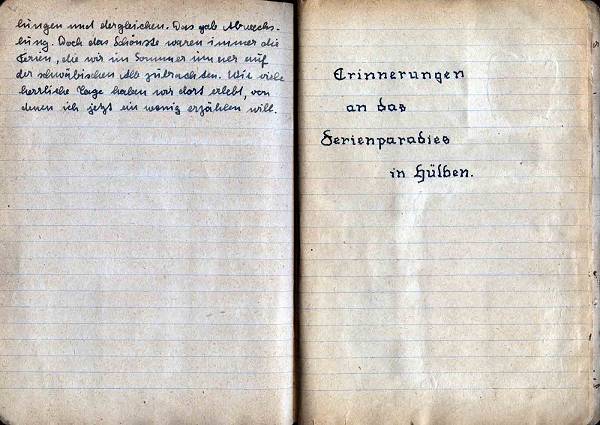 bungen und dergleichen. Das gab Abwechs-
lung. Doch das Schönste waren immer die
Ferien, die wir im Sommer immer auf
der schwäbischen Alb zubrachten. Wie viele
herrliche Tage haben wir dort erlebt, von
denen ich jetzt ein wenig erzählen will.
Erinnerungen
an das
Ferienparadies
in Hülben.